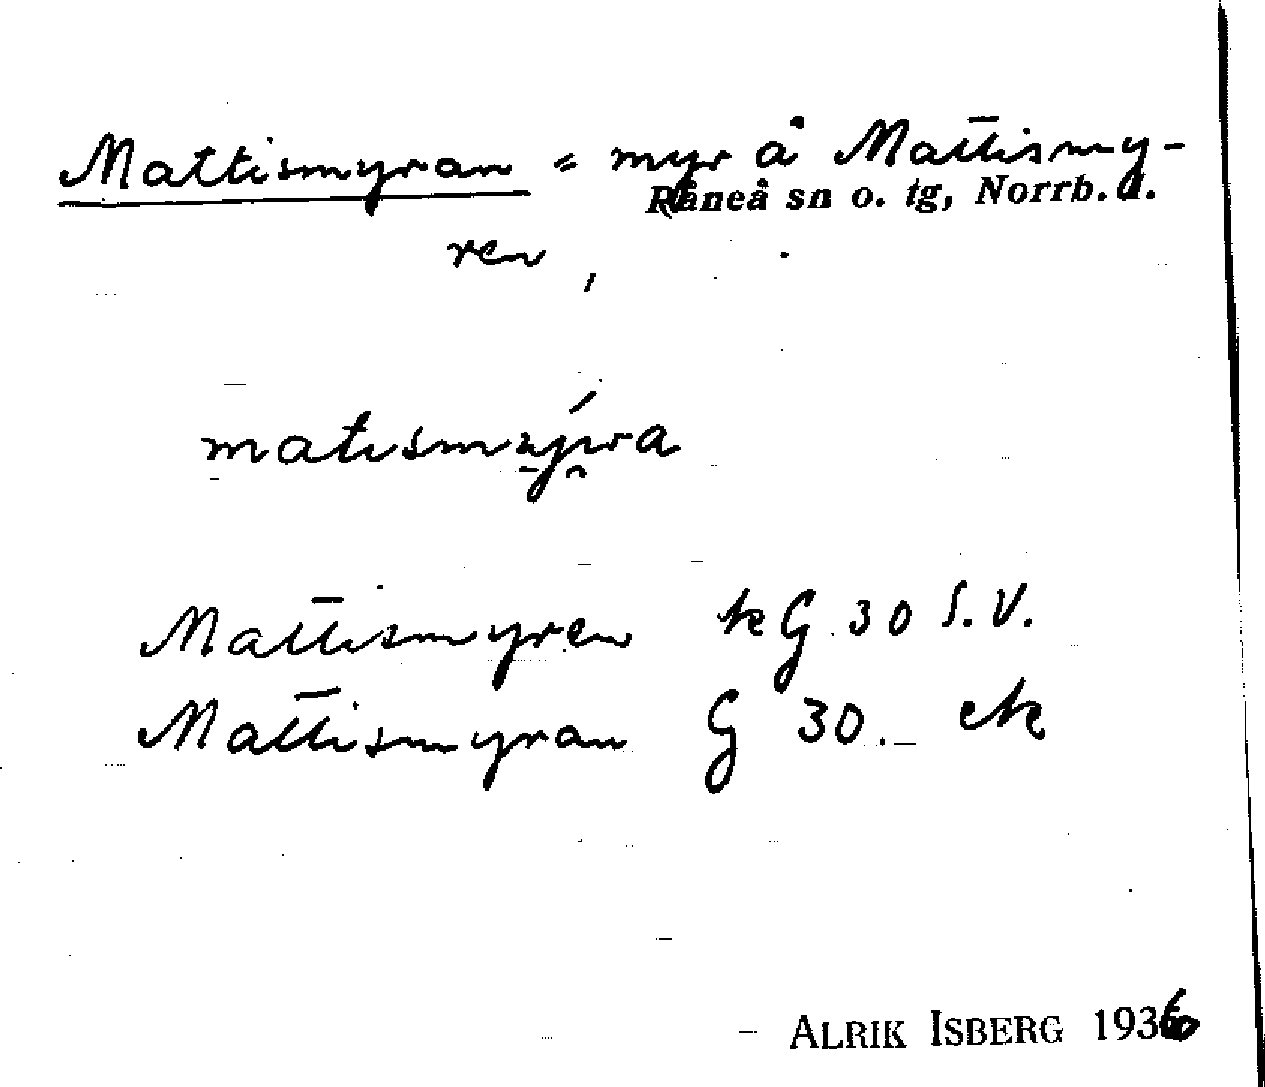 Mattismyran = myr å Mattismy-
Råneå sn o. tg, Norrb. l.
ren,
Mattismyren kG 30 S.V.
Mattismyran G 30. ek
- ALRIK ISBERG 1936